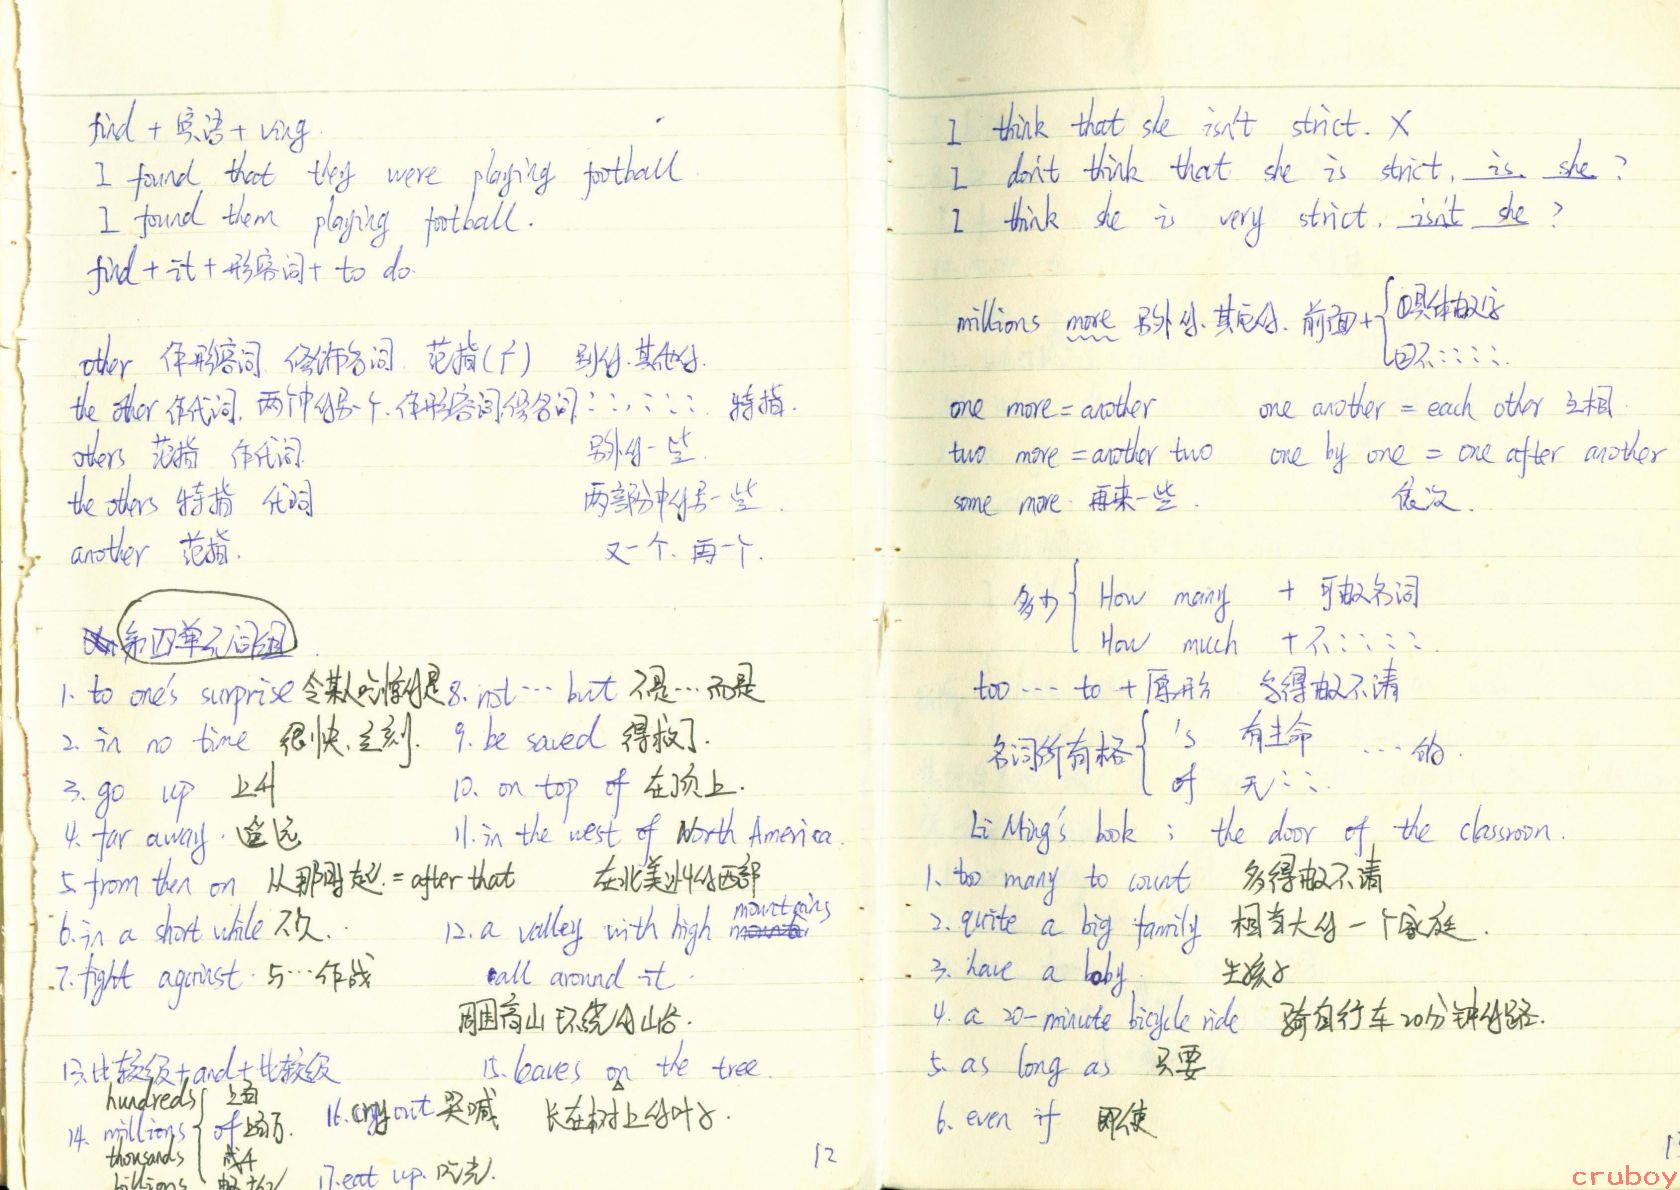 find + 宾语 + ving.
I found that they were playing football.
I found them playing football.
find + it + 形容词 + to do.
other 作形容词 修饰名词 范指( ) 别的.其他的.
the other 作代词, 两个中的另一个. 作形容词修名词 :::::: 特指.
others 范指 作代词 另外的一些.
the others 特指 代词 两部分中的另一些.
another 范指. 又一个. 再一个.
第四单元词组.
1. to one's surprise 令某人吃惊的是
2. in no time 很快.立刻.
3. go up 上升
4. far away. 遥远
5. from then on 从那时起. = after that
6. in a short while 不久.
7. fight against. 与…作战
8. not … but 不是…而是
9. be saved 得救了.
10. on top of 在顶上.
11. in the west of North America.
在北美洲的西部
12. a valley with high mountains
all around it.
周围高山环绕的山谷.
13. 比较级+and+比较级
14. hundreds 上百
millions of 上百万.
thousands 成千
billions
15. leaves on the tree.
长在树上的叶子.
16. cry out 哭喊
17. eat up. 吃光.
12
I think that she isn't strict. X
I don't think that she is strict, is she?
I think she is very strict, isn't she?
millions more 另外的、其它的. 前面+ { ①具体数字
②不::::.
one more = another one another = each other 互相.
two more = another two one by one = one after another
some more. 再来一些. 依次.
多少 { How many + 可数名词
How much + 不::::.
too … to + 原形 多得数不清
名词所有格 { 's 有生命 …的.
of 无::.
Li Ming's book ; the door of the classroom.
1. too many to count 多得数不清
2. quite a big family 相当大的一个家庭.
3. have a baby. 生孩子
4. a 20-minute bicycle ride 骑自行车20分钟的路.
5. as long as 只要
6. even if 即使
cruboy